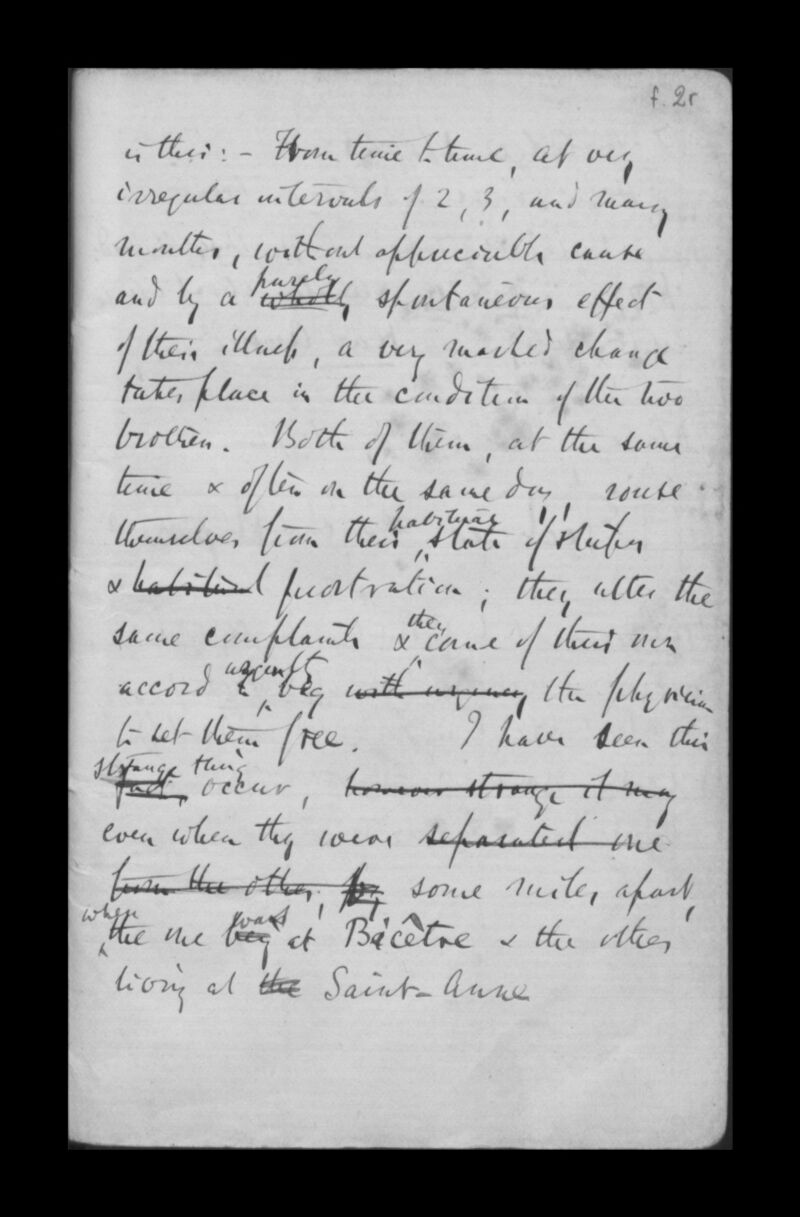 f. 2r
is this: - From time to time, at very
irregular intervals of 2, 3, and many
months, without appreciable cause
and by a wholly purely spontaneous effect
of their illness, a very marked change
takes place in the condition of the two
brothers. Both of them, at the same
time & often on the same day, rouse
themselves from their habitual state of stupor
& habitual prostration; they utter the
same complaints & they come of their own
accord & urgently beg with urgency the physician
to set them free. I have seen this
strange thing fact, occur, however strange it may
even when they were separated one
from the other, by some miles apart,
when the one being was at Bicêtre & the other
living at the Saint-Anne